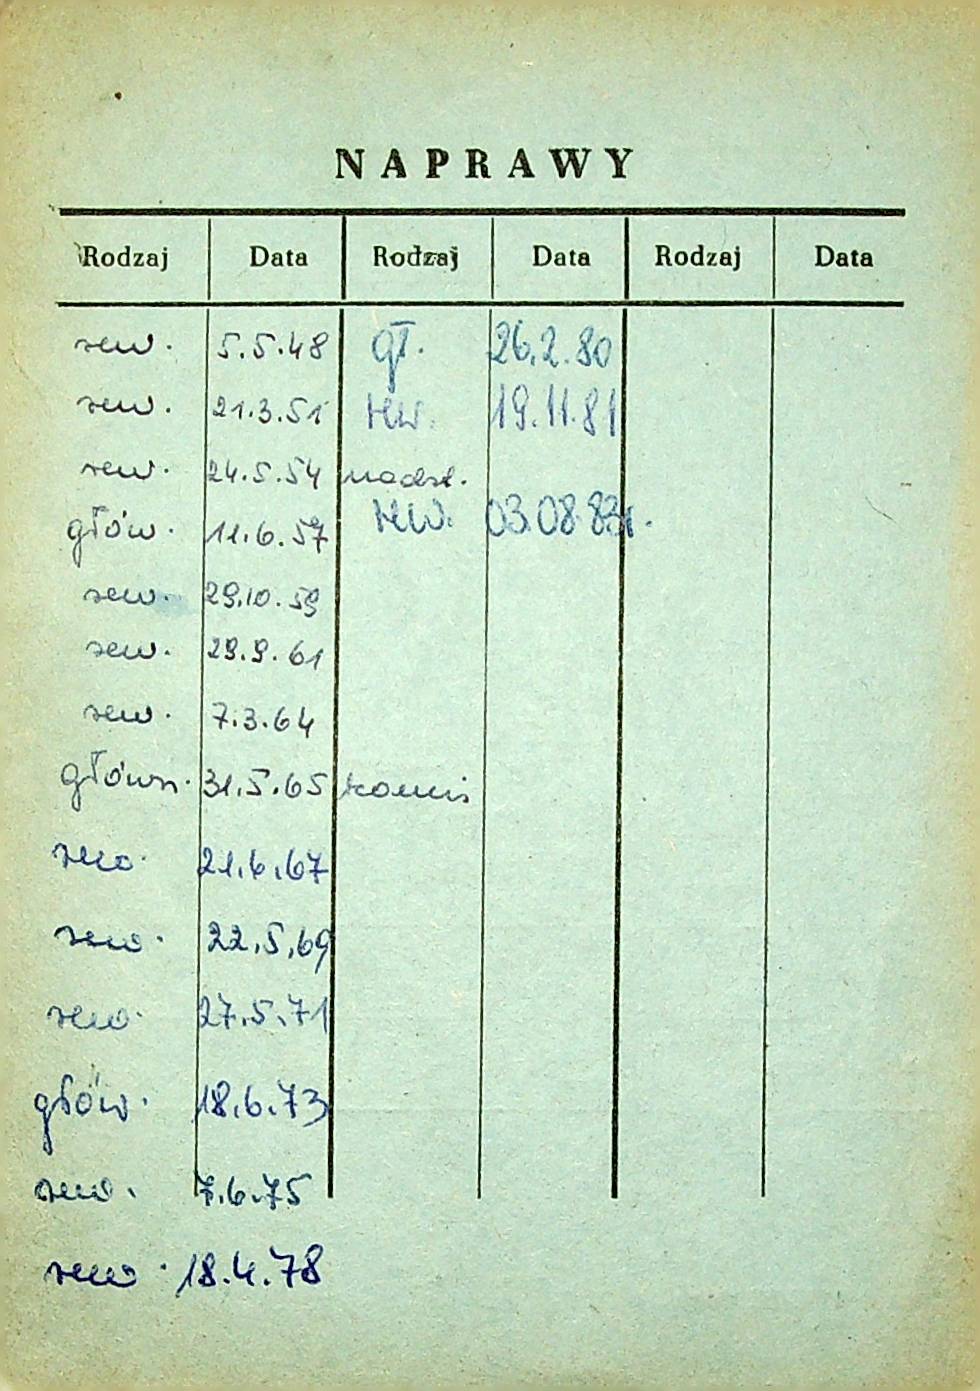 NAPRAWY
Rodzaj Data Rodzaj Data Rodzaj Data
rew. 5.5.48 gł. 26.2.80
rew. 21.3.51 rew. 19.11.81
rew. 24.5.54 nadzl.
głów. 11.6.57 rew. 03.08.83r.
rew. 29.10.59
rew. 29.9.61
rew. 7.3.64
główn. 31.5.65 komis
rew. 21.6.67
rew. 22.5.69
rew. 27.5.71
głów. 18.6.73
rew. 7.6.75
rew. 18.4.78